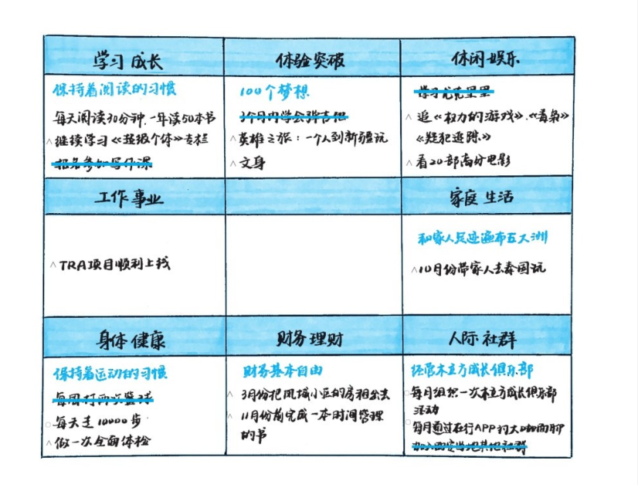 学习 成长
体验突破
休闲 娱乐
保持着阅读的习惯
每天阅读30分钟、一年读50本书
^继续学习《超级个体》专栏
报名参加写作课
100个梦想
3个月内学会弹吉他
^英雄之旅：一个人到新疆玩
^文身
学习尤克里里
^追《权力的游戏》、《看袅》
《疑犯追踪》
^看20部高分电影
工作 事业
家庭 生活
^TRA项目顺利上线
和家人足迹遍布五大洲
^10月份带家人去泰国玩
身体 健康
财务 理财
人际 社群
保持着运动的习惯
每周打两次篮球
每天走10000步
^做一次全面体检
财务基本自由
^3月份把凤城小区的房租出去
^11月份前完成一本时间管理
的书
经营木立方成长俱乐部
每月组织一次木立方成长俱乐部
活动
每月通过在行APP约大咖面聊